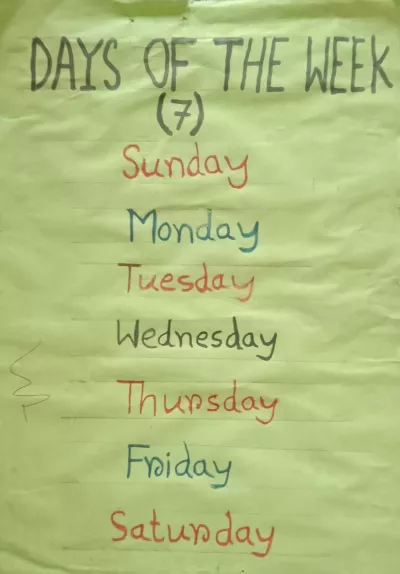 DAYS OF THE WEEK
(7)
Sunday
Monday
Tuesday
Wednesday
Thursday
Friday
Saturday